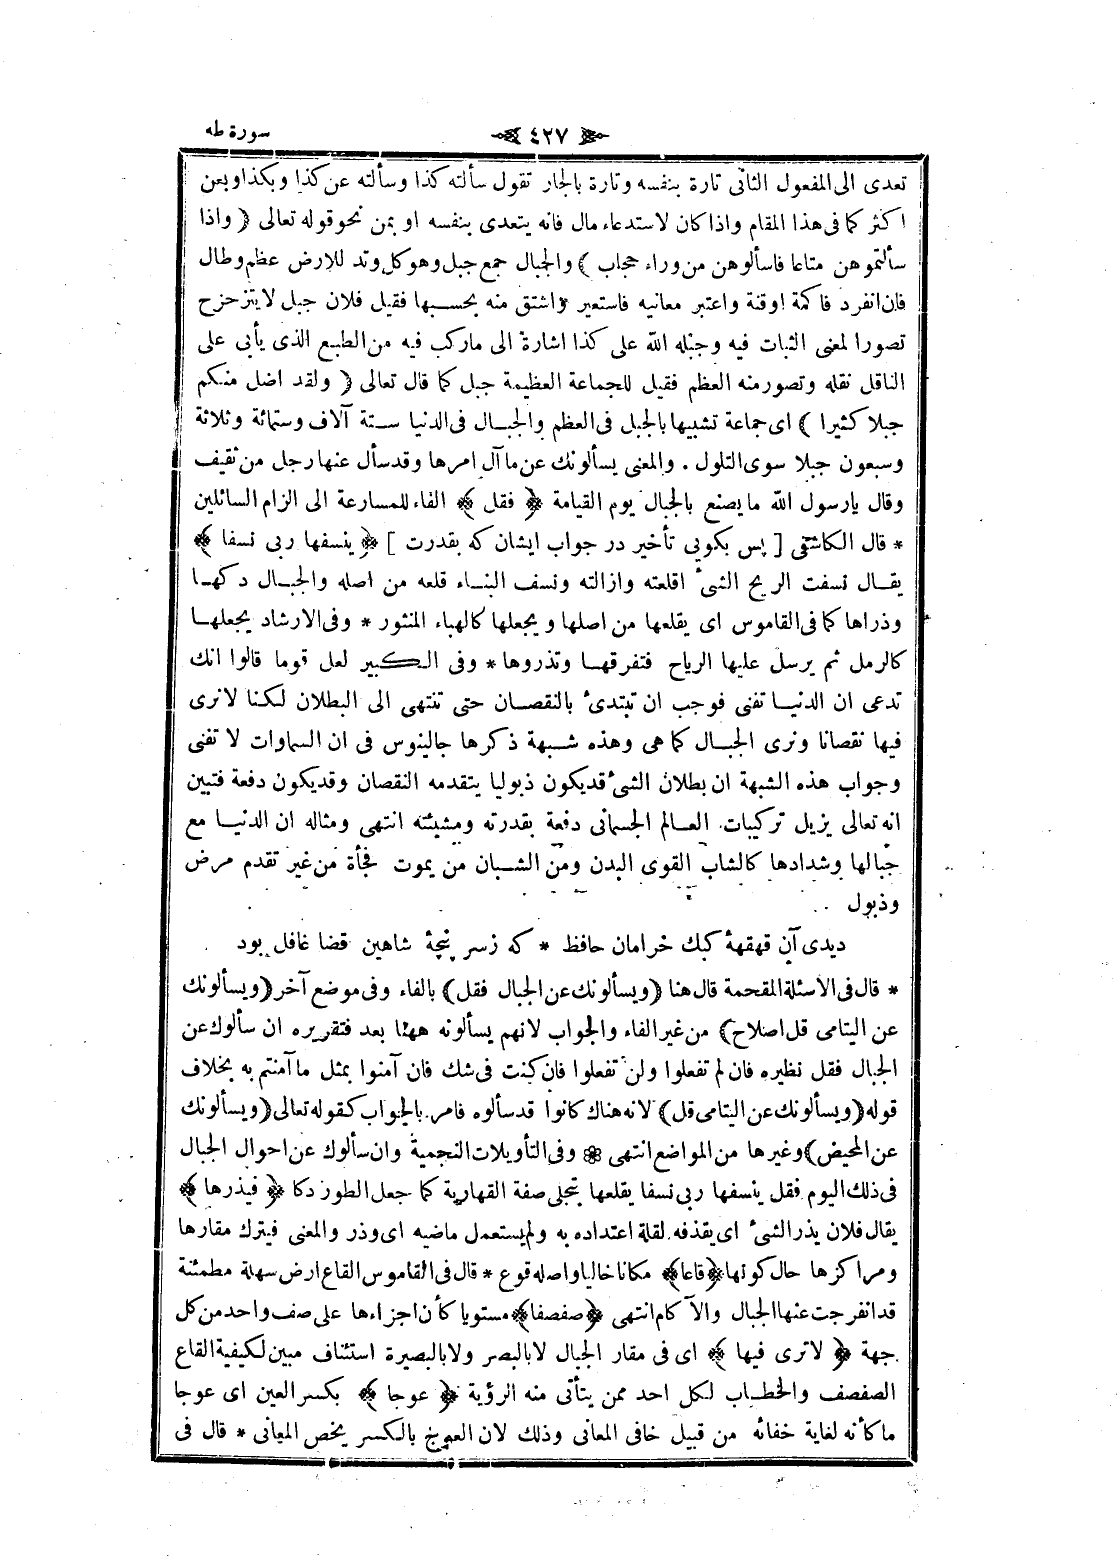 سورة طه
٤٢٧
تعدى الى المفعول الثانى تارة بنفسه وتارة بالجار تقول سألته كذا وسألته عن كذا وبكذا وبعن
اكثر كما فى هذا المقام واذا كان لاستدعاء مال فانه يتعدى بنفسه او بمن نحو قوله تعالى ( واذا
سألتموهن متاعا فاسألوهن من وراء حجاب ) والجبال جمع جبل وهو كل وتد للارض عظم وطال
فان انفرد فاكمة او قنة واعتبر معانيه فاستعير واشتق منه بحسبها فقيل فلان جبل لا يتزحزح
تصورا لمعنى الثبات فيه وجبله الله على كذا اشارة الى ماركب فيه من الطبع الذى يأبى على
الناقل نقله وتصور منه العظم فقيل للجماعة العظيمة جبل كما قال تعالى ( ولقد اضل منكم
جبلا كثيرا ) اى جماعة تشبيها بالجبل فى العظم والجبال فى الدنيا ستة آلاف وستمائة وثلاثة
وسبعون جبلا سوى التلول . والمعنى يسألونك عن مآل امرها وقد سأل عنها رجل من ثقيف
وقال يارسول الله مايصنع بالجبال يوم القيامة ﴿ فقل ﴾ الفاء للمسارعة الى الزام السائلين
* قال الكاشفى [ پس بكويى تأخير در جواب ايشان كه بقدرت ] ﴿ ينسفها ربى نسفا ﴾
يقال نسفت الريح الشئ اقلعته وازالته ونسف البناء قلعه من اصله والجبال دكها
وذراها كما فى القاموس اى يقلعها من اصلها ويجعلها كالهباء المنثور * وفى الارشاد يجعلها
كالرمل ثم يرسل عليها الرياح فتفرقها وتذروها * وفى الكبير لعل قوما قالوا انك
تدعى ان الدنيا تفنى فوجب ان تبتدئ بالنقصان حتى تنتهى الى البطلان لكنا لا نرى
فيها نقصانا ونرى الجبال كما هى وهذه شبهة ذكرها جالينوس فى ان السماوات لا تفنى
وجواب هذه الشبهة ان بطلان الشئ قد يكون ذبوليا يتقدمه النقصان وقد يكون دفعة فتبين
انه تعالى يزيل تركيبات العالم الجسمانى دفعة بقدرته ومشيئته انتهى ومثاله ان الدنيا مع
جبالها وشدادها كالشاب القوى البدن ومن الشبان من يموت فجأة من غير تقدم مرض
وذبول
ديدى آن قهقهۀ كبك خرامان حافظ * كه زسر پنجۀ شاهين قضا غافل بود
* قال فى الاسئلة المقحمة قال هنا ( ويسألونك عن الجبال فقل ) بالفاء وفى موضع آخر ( ويسألونك
عن اليتامى قل اصلاح ) من غير الفاء والجواب لانهم يسألونه ههنا بعد فتقريره ان سألوك عن
الجبال فقل نظيره فان لم تفعلوا ولن تفعلوا فان كنت فى شك فان آمنوا بمثل ما آمنتم به بخلاف
قوله ( ويسألونك عن اليتامى قل ) لانه هناك كانوا قد سألوه فامر بالجواب كقوله تعالى ( ويسألونك
عن المحيض ) وغيرها من المواضع انتهى ❁ وفى التأويلات النجمية وان سألوك عن احوال الجبال
فى ذلك اليوم فقل ينسفها ربى نسفا يقلعها بتجلى صفة القهارية كما جعل الطور دكا ﴿ فيذرها ﴾
يقال فلان يذر الشئ اى يقذفه لقلة اعتداده به ولم يستعمل ماضيه اى وذر والمعنى فيترك مقارها
ومراكزها حال كونها ﴿ قاعا ﴾ مكانا خاليا واصله قوع * قال فى القاموس القاع ارض سهلة مطمئنة
قد انفرجت عنها الجبال والآكام انتهى ﴿ صفصفا ﴾ مستويا كأن اجزاءها على صف واحد من كل
جهة ﴿ لاترى فيها ﴾ اى فى مقار الجبال لا بالبصر ولا بالبصيرة استئناف مبين لكيفية القاع
الصفصف والخطاب لكل احد ممن يتأتى منه الرؤية ﴿ عوجا ﴾ بكسر العين اى عوجا
ما كأنه لغاية خفائه من قبيل خافى المعانى وذلك لان العوج بالكسر يخص المعانى * قال فى